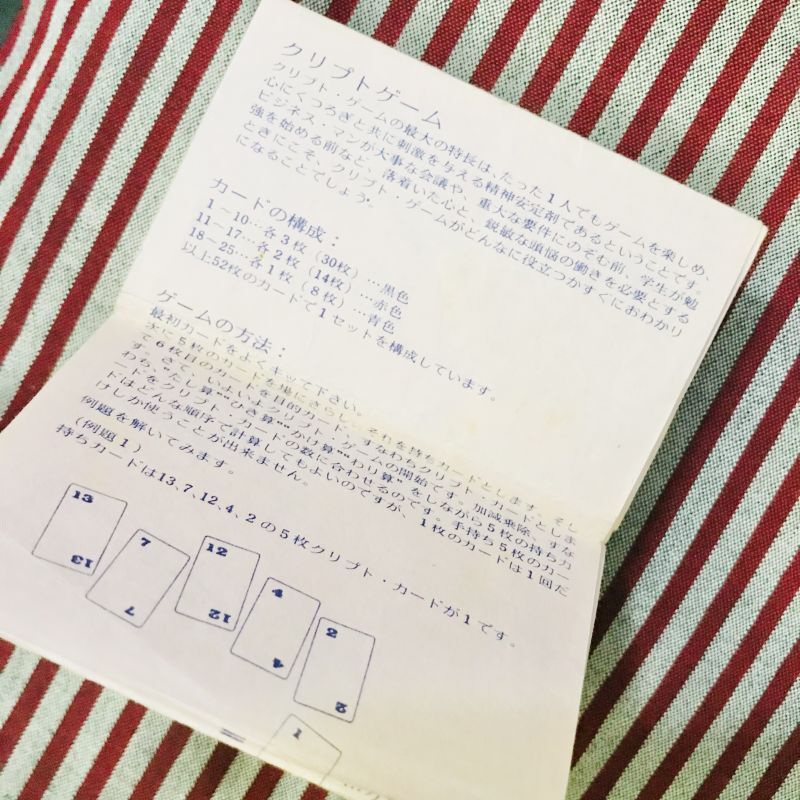 クリプトゲーム
クリプト・ゲームの最大の特長は、たった1人でもゲームを楽しめ、
心にくつろぎと共に刺激を与える精神安定剤であるということです。
ビジネス・マンが大事な会議や、重大な要件にのぞむ前、学生が勉
強を始める前など、落着いた心と、鋭敏な頭悩の働きを必要とする
ときにこそ、クリプト・ゲームがどんなに役立つかすぐにおわかり
になることでしょう。
カードの構成：
1～10…各3枚（30枚）…黒色
11～17…各2枚（14枚）…赤色
18～25…各1枚（8枚）…青色
以上52枚のカードで1セットを構成しています。
ゲームの方法：
最初カードをよくキッて下さい。
次に5枚のカードを場にさらし、それを持ちカードとします。そし
て6枚目のカードを目的カード、すなわちクリプト・カードとしま
す。さて、いよいよクリプト・ゲームの開始です。加減乗除、すな
わち、“たし算”“ひき算”“かけ算”“わり算”をしながら5枚の持ちカ
ードをクリプト・カードの数に合わせるのです。手持ち5枚のカー
ドはどんな順序で計算してもよいのですが、1枚のカードは1回だ
けしか使うことが出来ません。
例題を解いてみます。
（例題1）
持ちカードは13、7、12、4、2の5枚クリプト・カードが1です。
13
13
7
7
12
12
4
4
2
2
1